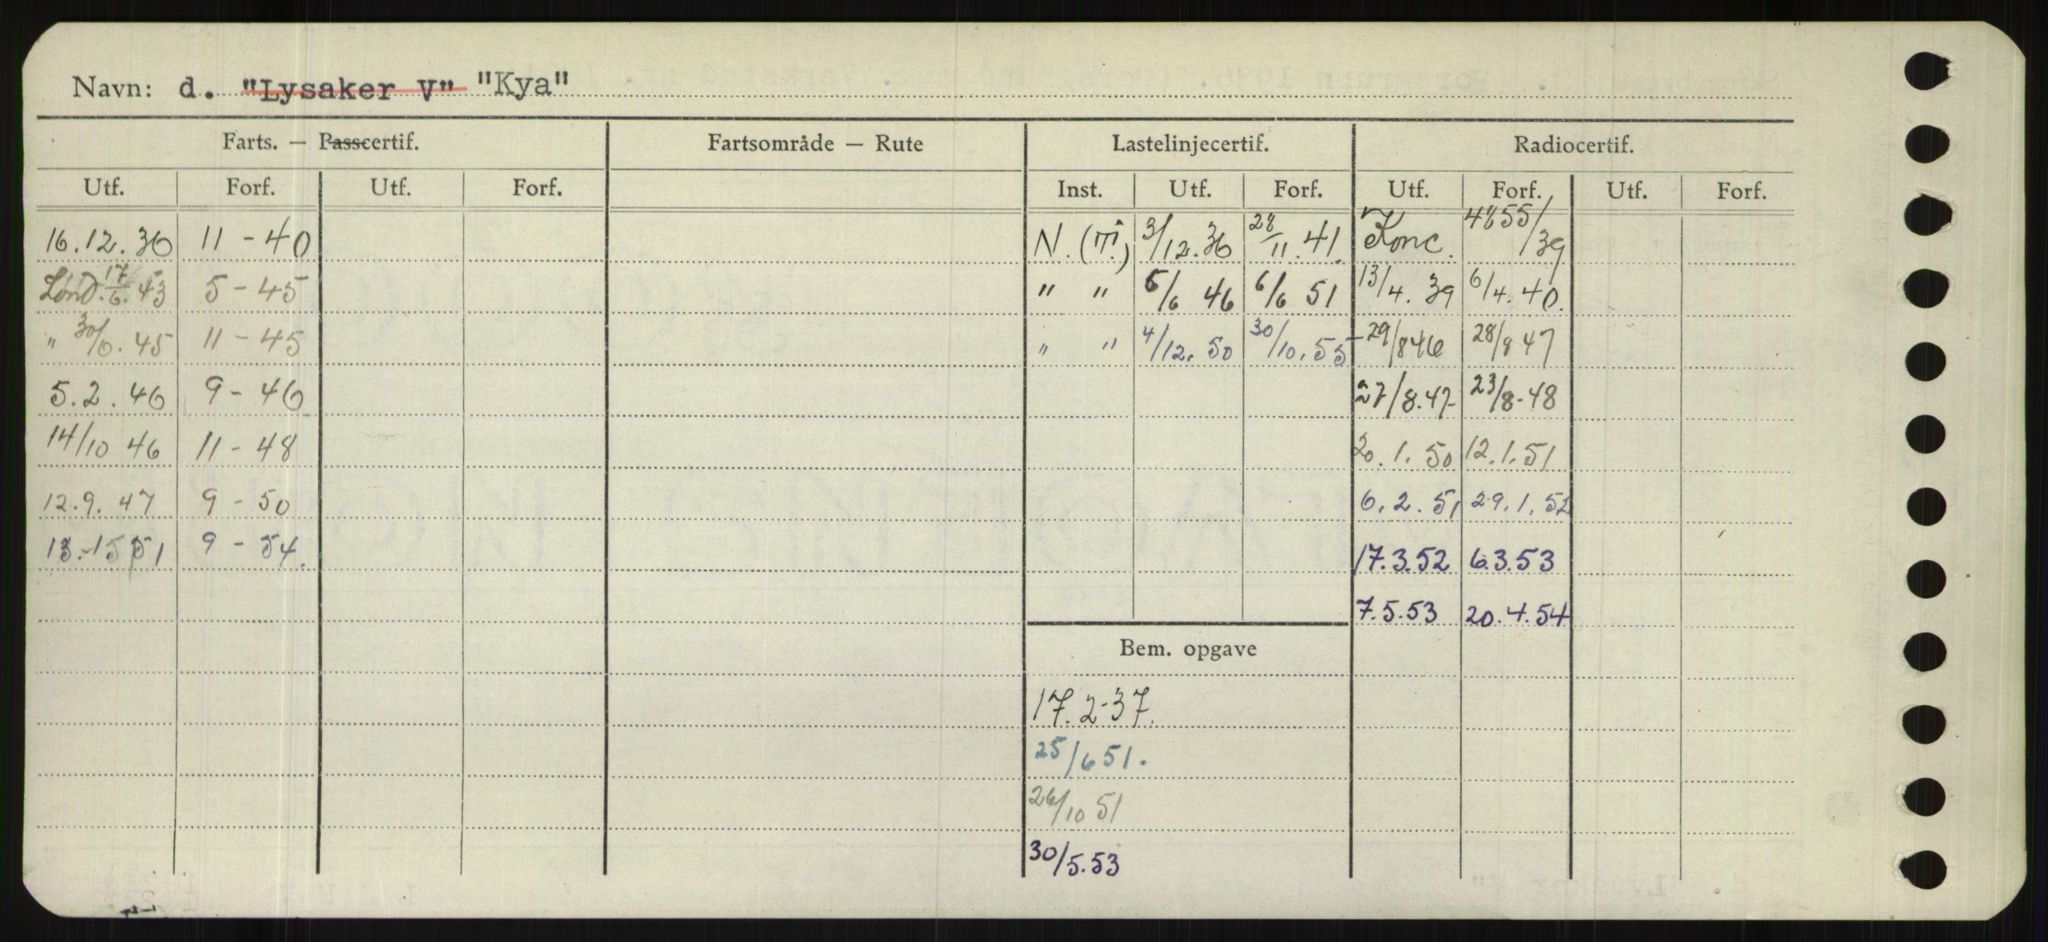 Navn: d. "Lysaker V" "Kya"
Farts. — Passcertif. Fartsområde — Rute Lastelinjecertif. Radiocertif.
Utf. Forf. Utf. Forf. Inst. Utf. Forf. Utf. Forf. Utf. Forf.
16.12.36 11-40 N. (T.) 3/12.36 28/11.41. Konc. 4855/39
Lond. 17/6.43 5-45 " " 6/6 46 6/6 51 13/4.39 6/4.40.
" 30/6.45 11-45 " " 4/12.50 30/10.55 29/8 46 28/8 47
5.2.46 9-46 27/8.47 23/8-48
14/10 46 11-48 20.1.50 12.1.51
12.9.47 9-50 6.2.51 29.1.52
9-54. 17.3.52 6.3.53
7.5.53 20.4.54
Bem. opgave
17.2-37.
25/6 51.
26/10 51
30/5.53